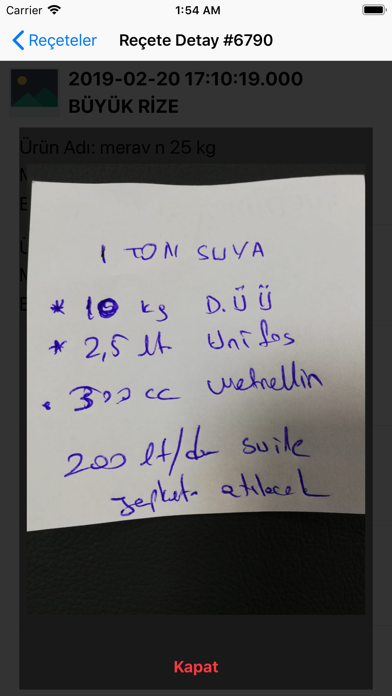 Carrier 1:54 AM
Reçeteler Reçete Detay #6790
2019-02-20 17:10:19.000
BÜYÜK RİZE
Ürün Adı: merav n 25 kg
1 TON SUYA
* 10 kg D.ÜÜ
* 2,5 lt Unifos
• 300 cc
200 lt/da su ile
atılacak
Kapat